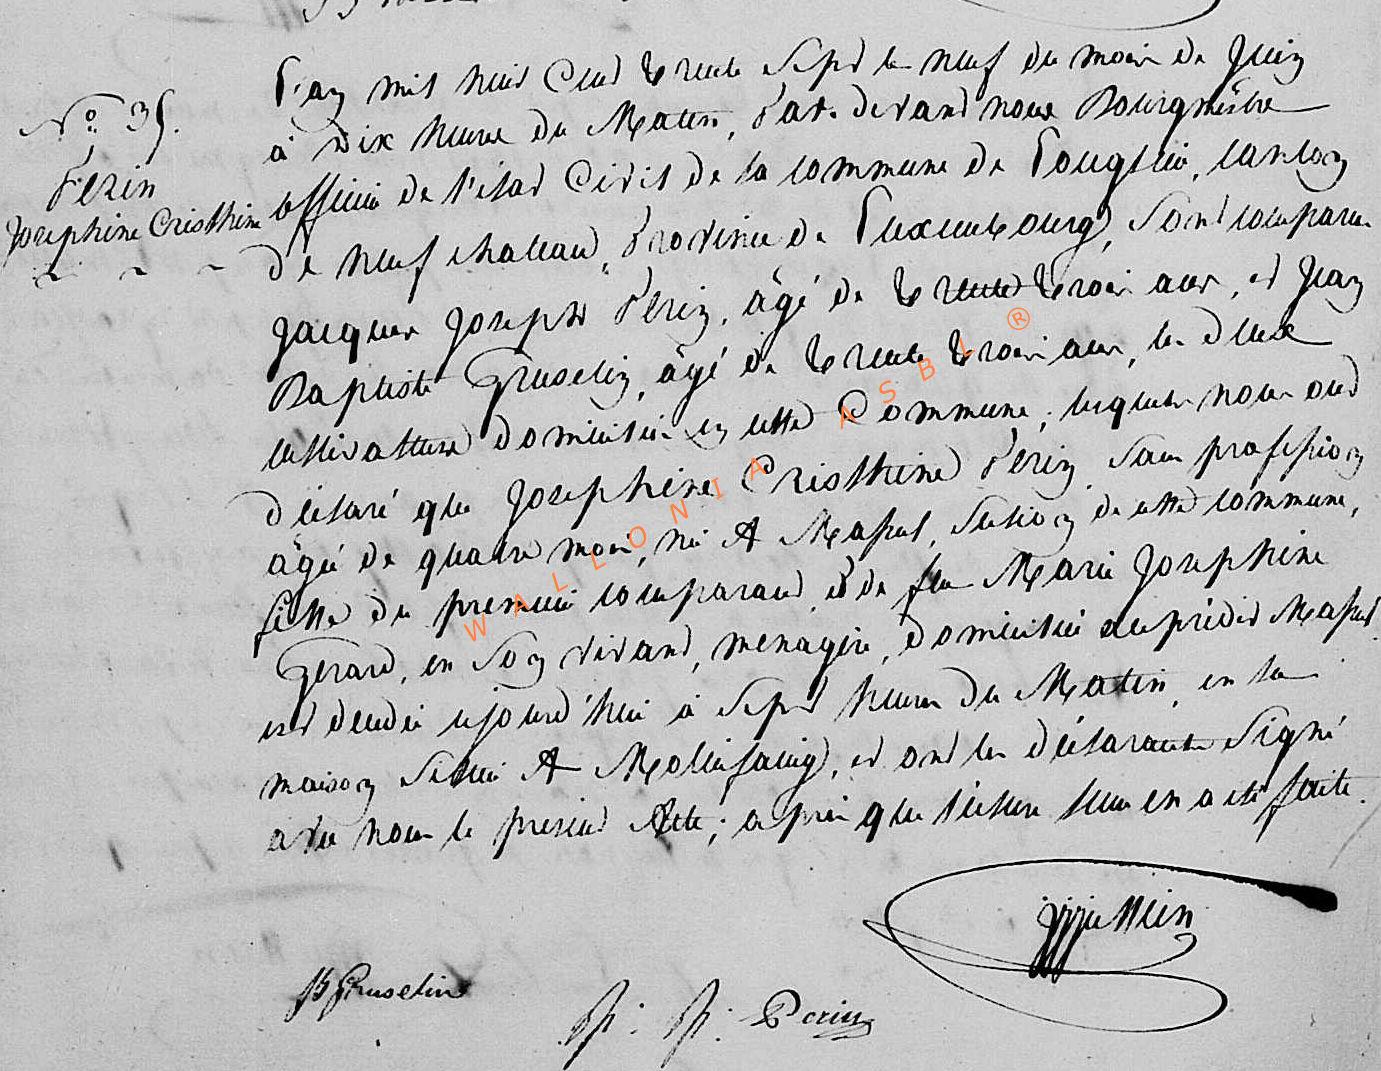 N° 35.
Perin
Josephine Cristhine
L'an mil huit Cent trente sept le neuf du mois de Juin
à Dix heures du Matin, Par devant nous Bourgmêstre
officier de l'état Civil de la commune de Longlier, canton
de Neufchateau, Province de Luxembourg, sont comparu
Jacques Joseph Perin, âgé de trente trois ans, et Jean
Baptiste Gruselin, âgé de trente trois ans, les deux
cultivatteurs domicilié en cette Commune, lesquels nous ont
déclaré que Josephine Cristhine Perin, sans profession
âgée de quatre mois, né A Massul, section de cette commune,
fille du premier comparant et de feu Marie Josephine
Gerard, en son vivant, menagère, domiciliée au prédit Massul
est deudée ajourd'hui à sept heures du Matin, en sa
maison situé A Molinfaing, et ont les déclarants signé
avec nous le present Acte, après que lecture leur en a été faite.
JB Gruselin
J. J. Perin
WALLONIA ASBL ®